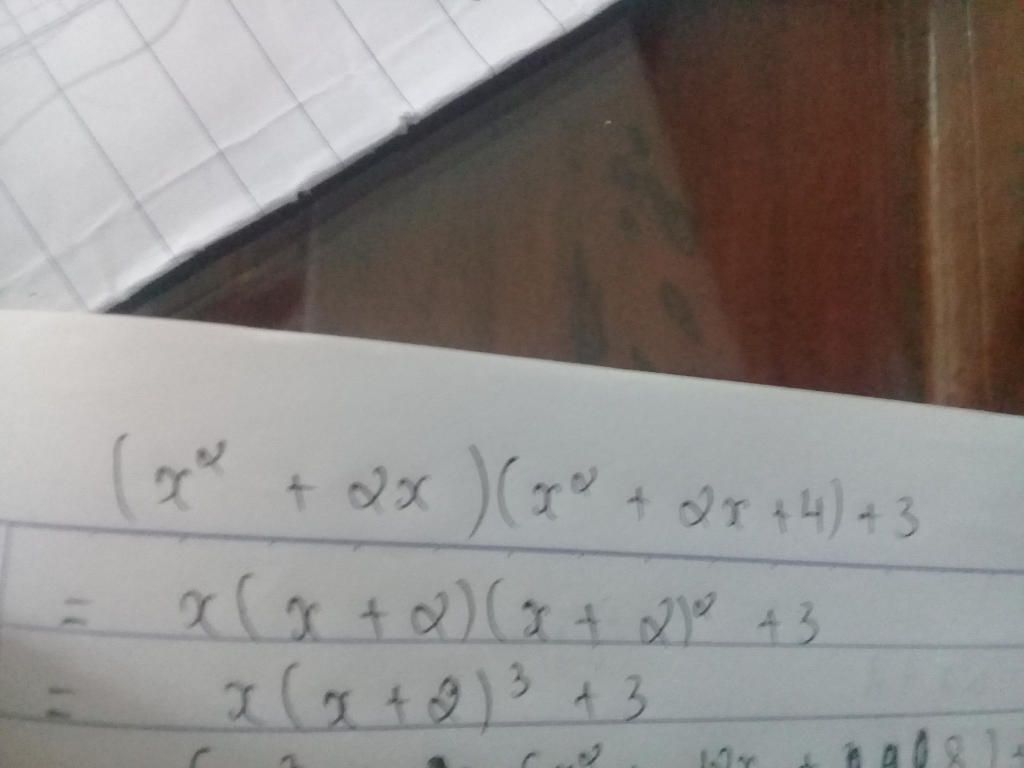 (x² + 2x)(x² + 2x + 4) + 3
= x(x + 2)(x + 2)² + 3
= x(x + 2)³ + 3